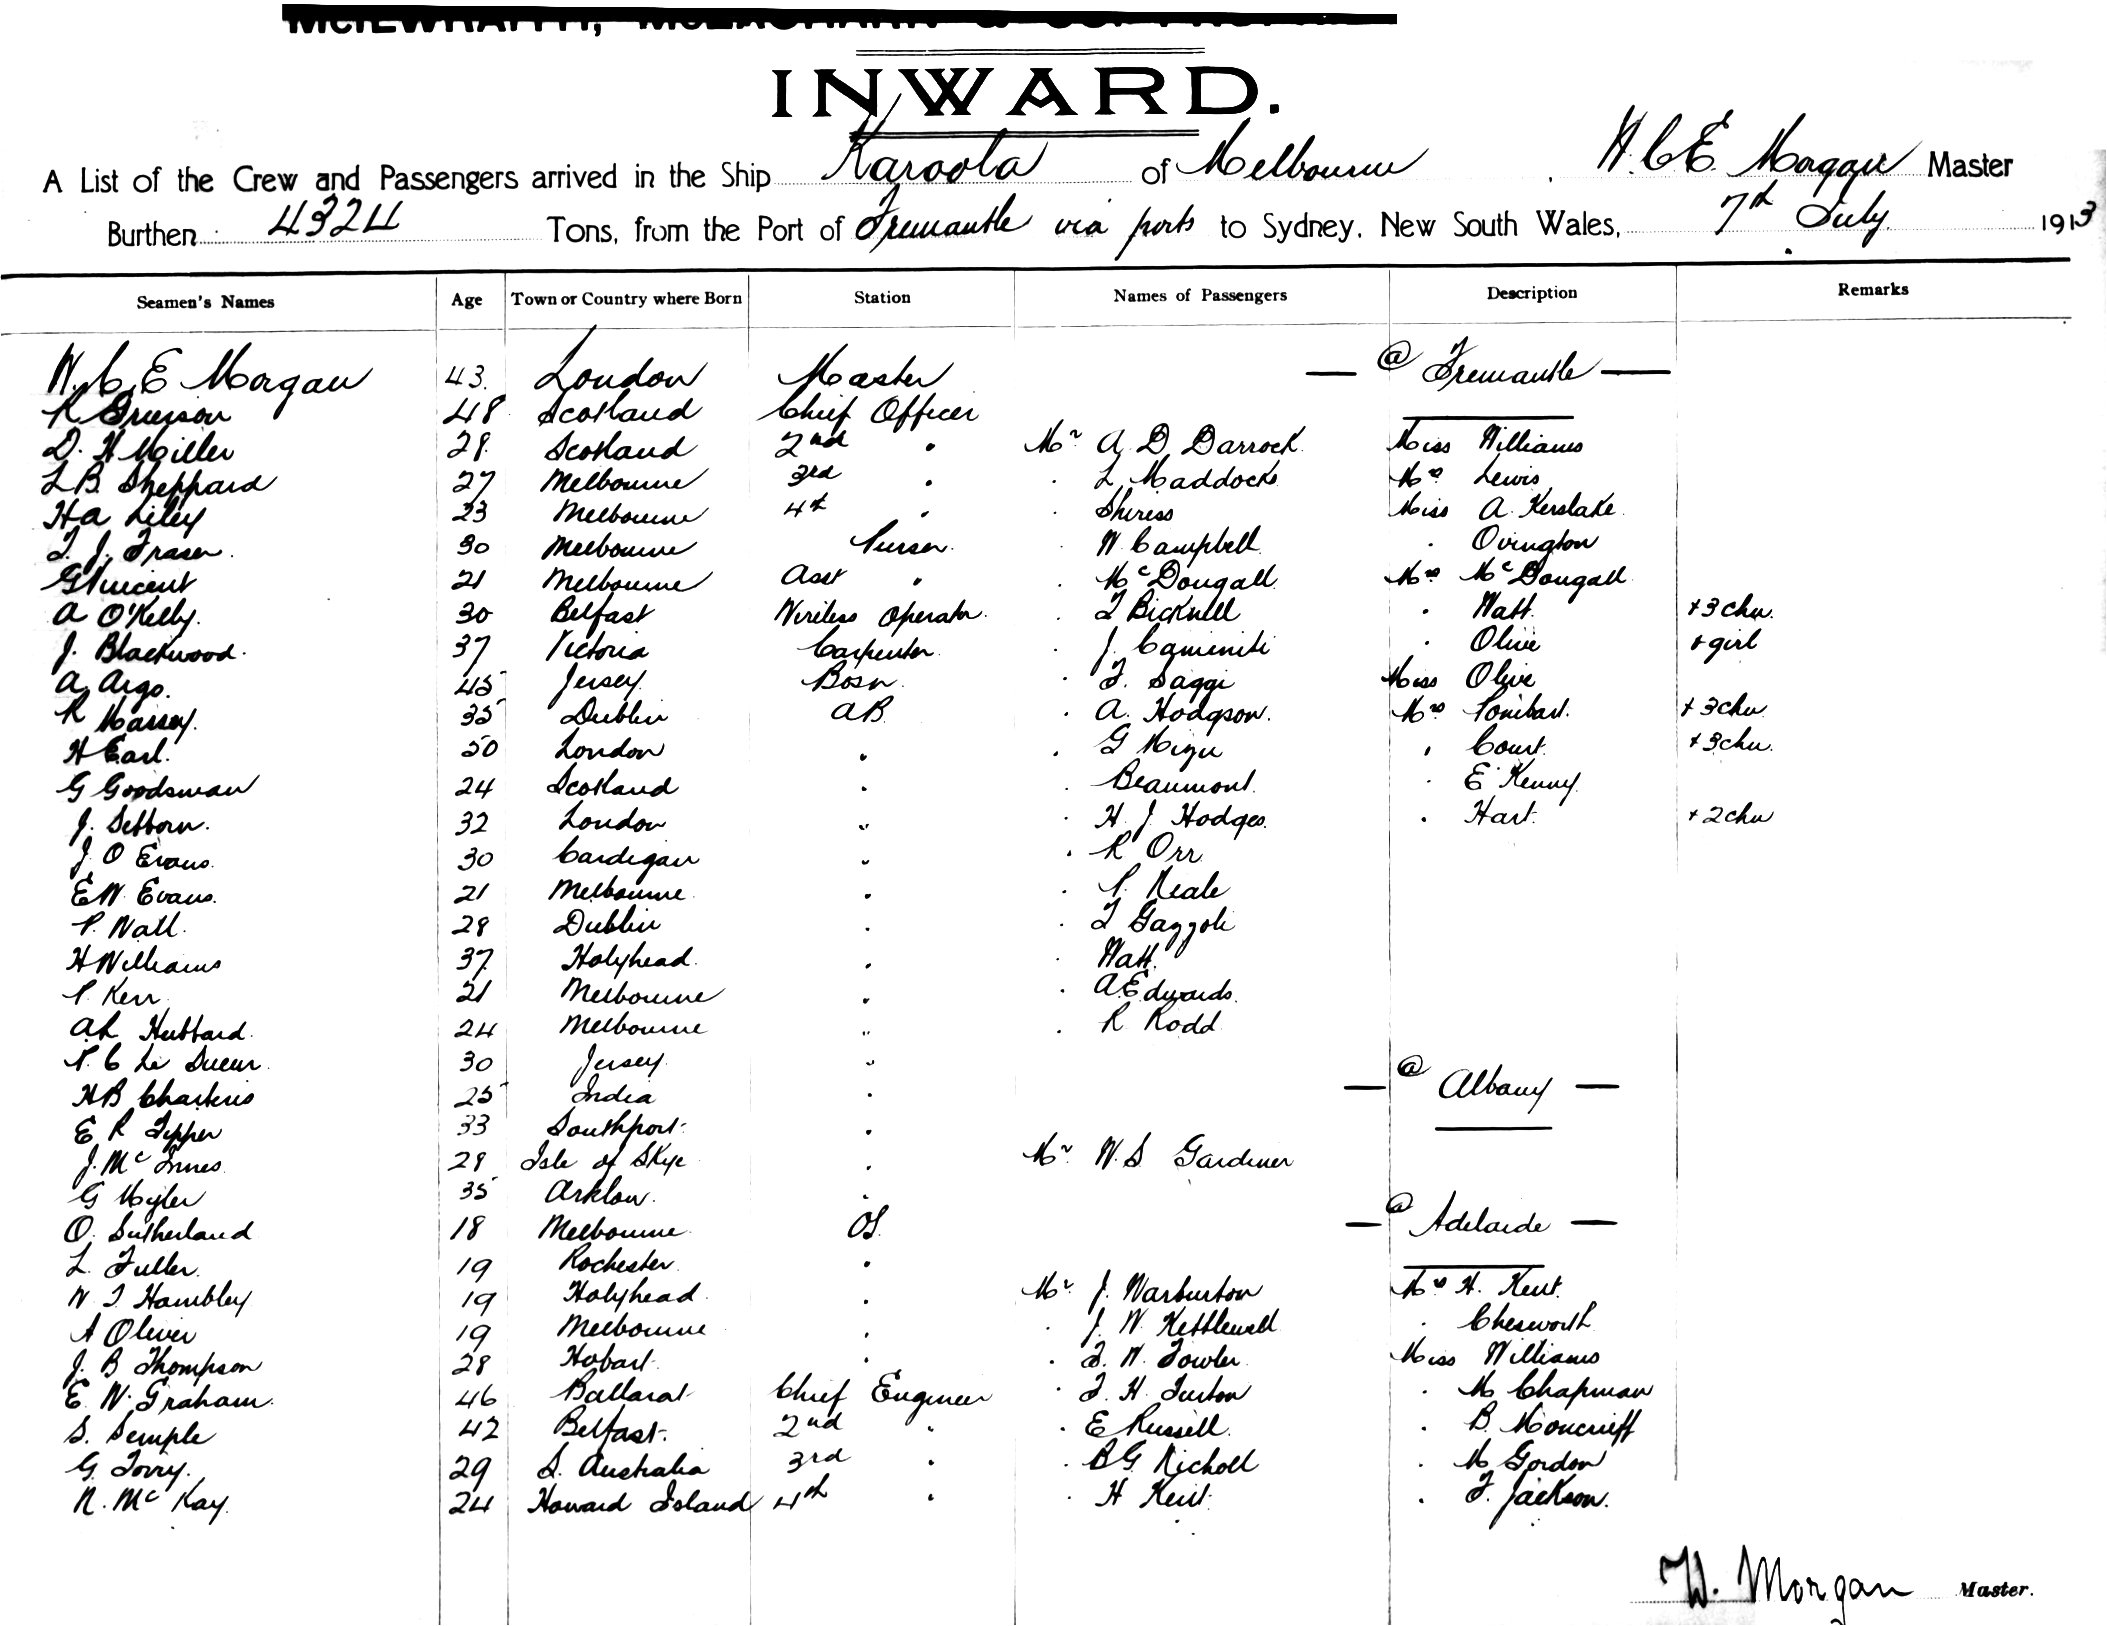 INWARD.
A List of the Crew and Passengers arrived in the Ship Karoola of Melbourne, W. C. E. Morgan Master
Burthen 4324 Tons, from the Port of Fremantle via ports to Sydney, New South Wales, 7th July 1913
Seamen's Names Age Town or Country where Born Station Names of Passengers Description Remarks
W. C. E Morgan 43. London Master — @ Fremantle —
R Grierson 48 Scotland Chief Officer
D. H Miller 28. Scotland 2nd " Mr A. D. Darrock. Miss Williams
L B. Sheppard 27 Melbourne 3rd " " L Maddocks Mrs Lewis
H a Liley 23 Melbourne 4th " " Shiress Miss A. Kerslake
T. J. Fraser. 30 Melbourne Purser. " W. Campbell " Ovington
G Vincent 21 Melbourne Asst " " McDougall. Mrs McDougall
A O'Kelly. 30 Belfast Wireless Operator. " T Bicknell " Watt. + 3 chn.
J. Blackwood. 37 Victoria Carpenter. " J. Caminiti " Olive + girl
A. Argo. 45 Jersey. Bosn. " F. Saggi Miss Olive
R Massey. 35 Dublin AB. " A. Hodgson. Mrs + 3 chn
H Earl. 50 London " " G " Court. + 3 chn.
G Goodsman 24 Scotland " " Beaumont. " E Kenny.
J. Sebborn. 32 London " " H. J. Hodges. " Hart. + 2 chn
J. O Evans. 30 Cardigan " " R Orr
E W Evans. 21 Melbourne " " P. Neale
P. Wall. 28 Dublin " " T Gazzoli
H Williams 37. Holyhead. " " Watt.
P. Kerr 21 Melbourne " " A. Edwards.
A. L Hubbard. 24 Melbourne " " R Rodd
P. C Le Sueur. 30 Jersey. "
H B Charteris 25 India " — @ Albany —
E R Tipper 33 Southport. "
J. McInnes 28 Isle of Skye " Mr. W. S Gardiner
G Myler 35 Arklow. "
O. Sutherland 18 Melbourne OS. — @ Adelaide —
L. Fuller. 19 Rochester "
W T Hambley 19 Holyhead. " Mr J. Warburton Mrs H. Kent.
A Oliver 19 Melbourne " " J. W. Kettlewell " Chesworth
J. B Thompson 28 Hobart. " " F. W. Fowler. Miss Williams
E. W. Graham. 46 Ballarat Chief Engineer " F. H. Turton " M Chapman
S. Semple 42 Belfast. 2nd " " E Russell. " B. Moncrieff
G. Torry. 29 S. Australia 3rd " " B G. Nicholl " M Gordon
N. McKay. 24 Howard Island 4th " " H Kent. " F. Jackson.
W. Morgan Master.